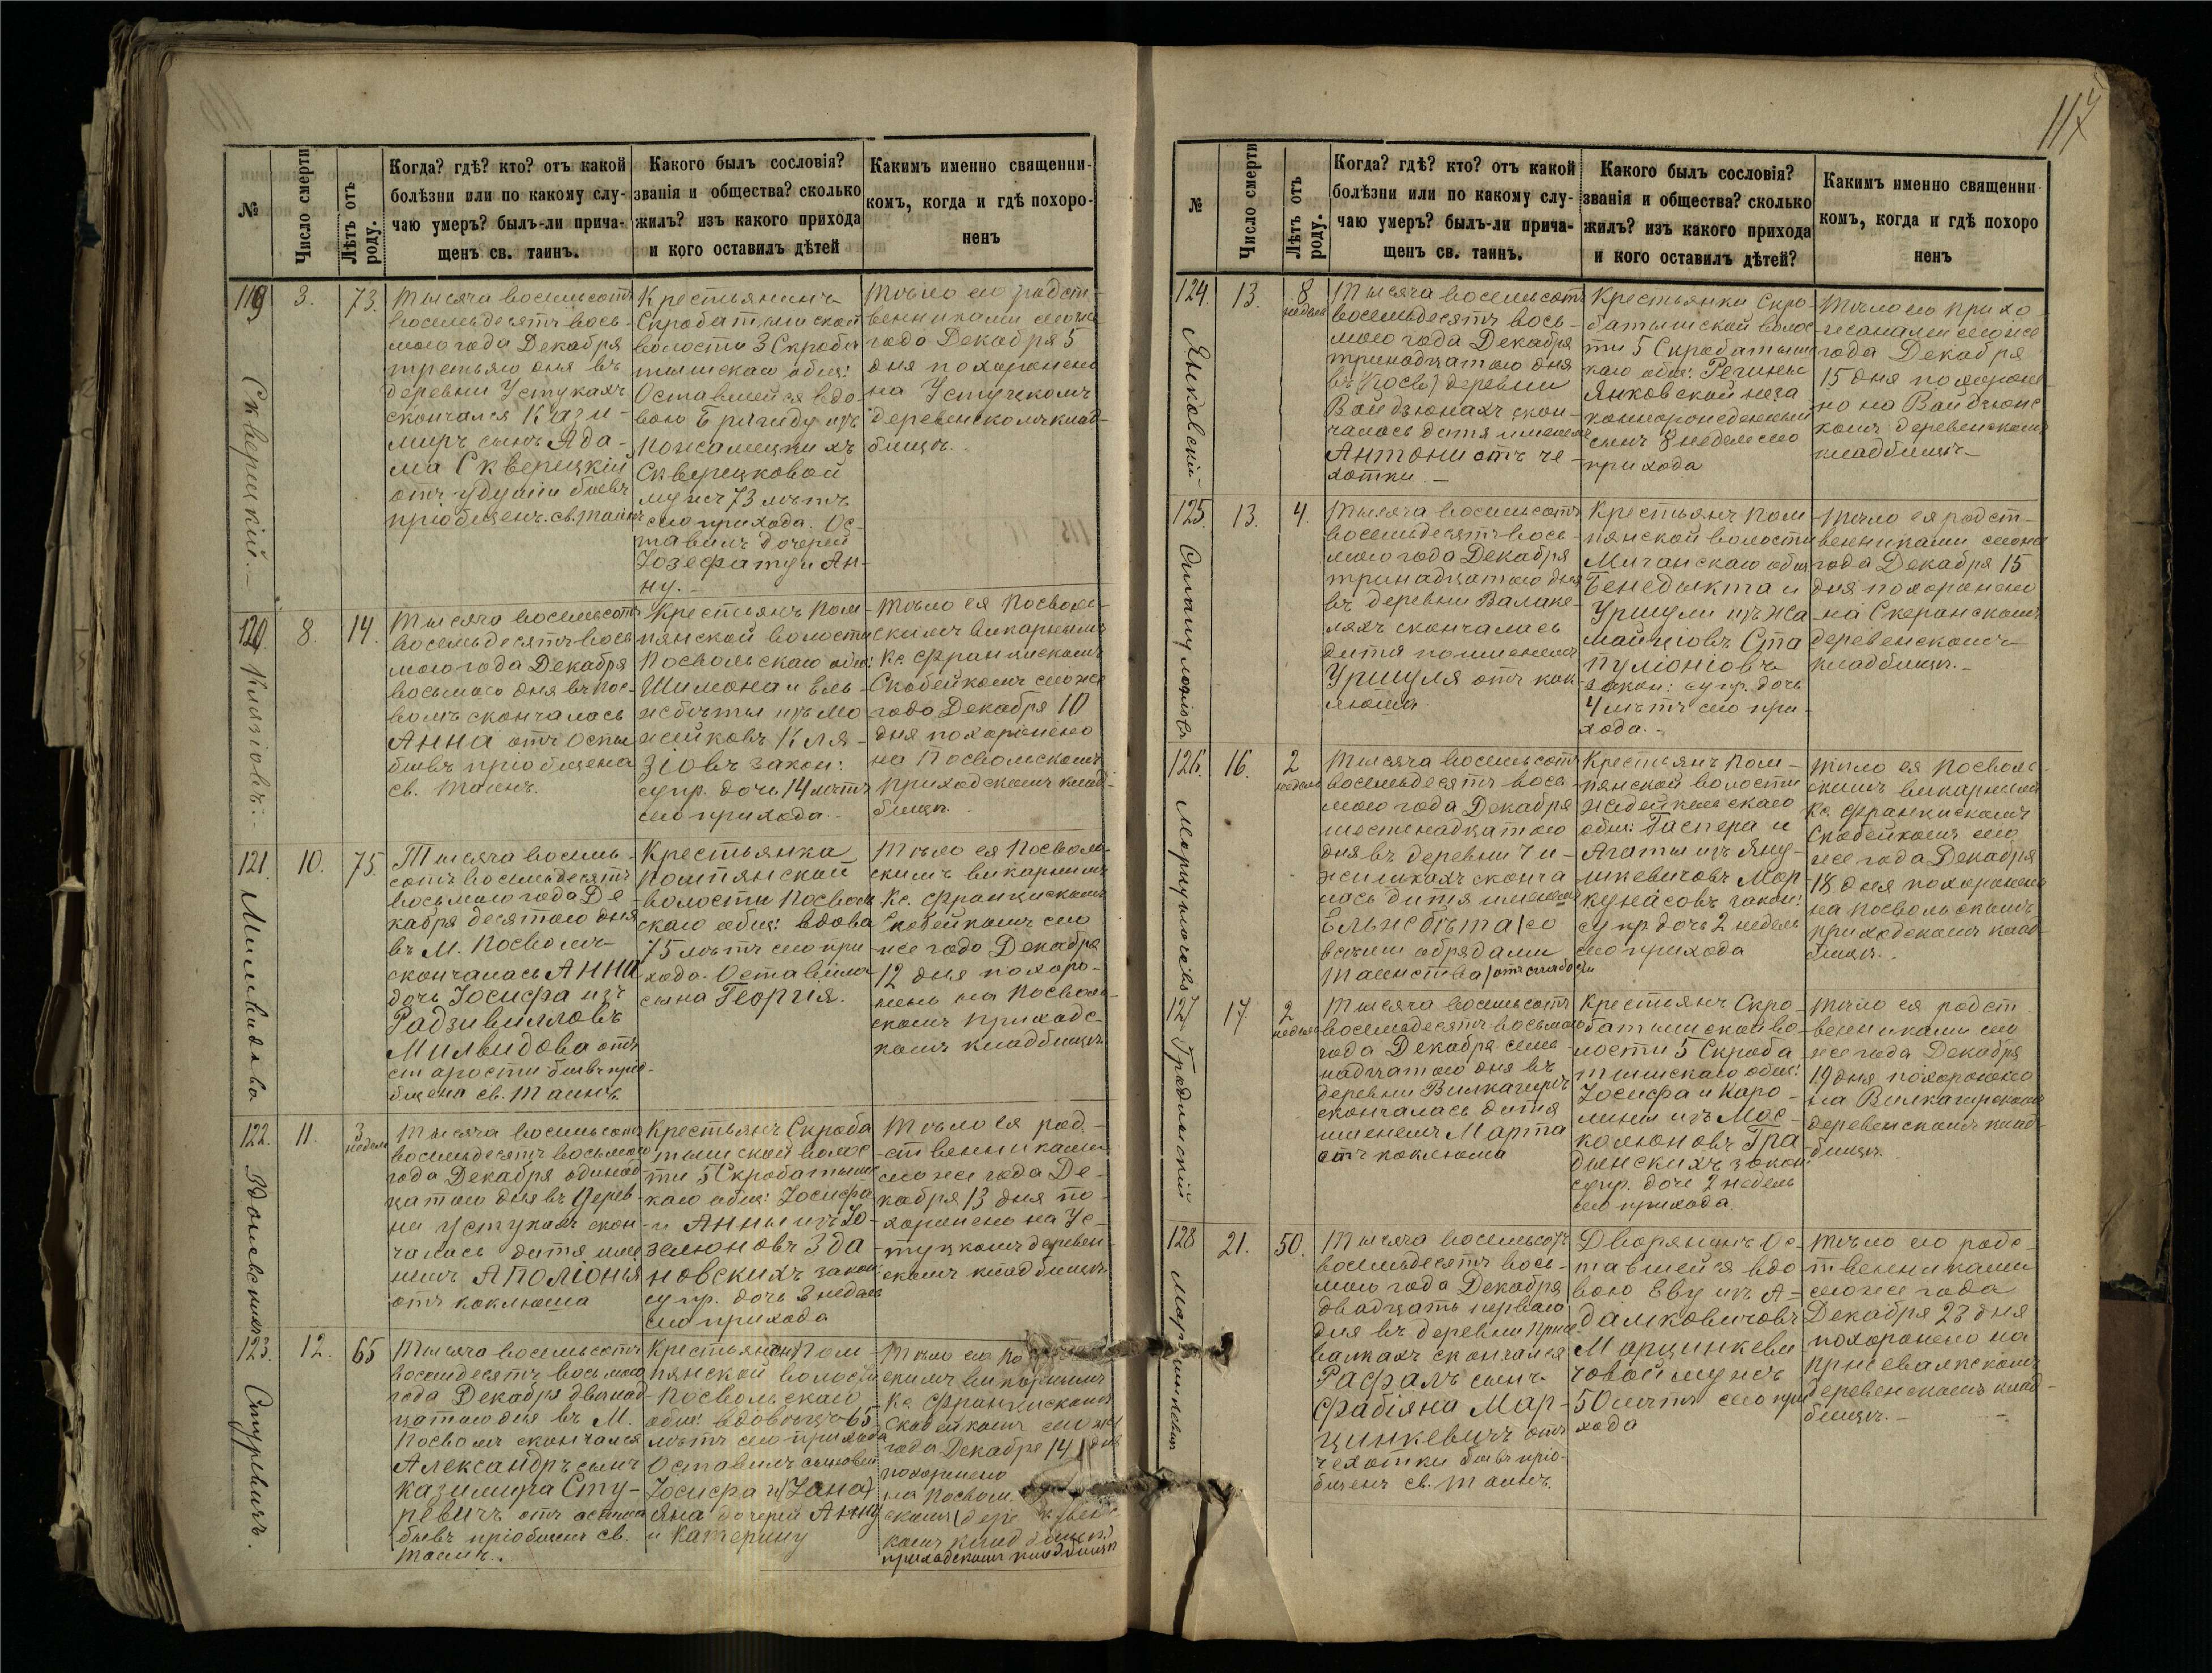 117
№
Число смерти
Лѣтъ отъ роду.
Когда? гдѣ? кто? отъ какой
болѣзни или по какому слу-
чаю умеръ? былъ-ли прича-
щенъ св. таинъ.
Какого былъ сословія?
званія и общества? сколько
жилъ? изъ какого прихода
и кого оставилъ дѣтей
Какимъ именно священни-
комъ, когда и гдѣ похоро-
ненъ
119
Скверецкій.
3.
73.
Тысяча восемьсотъ
восемьдесятъ вось-
мого года Декабря
третьяго дня въ
деревни Устукахъ
скончался Кази-
миръ сынъ Ада-
ма Скверецкій
отъ удушіи бывъ
пріобщенъ св. таинъ
Крестьянинъ
Скробатышской
волости 3 Скроба
тышскаго общ:
Оставшейся вдо-
вою Бригиду изъ
Скверецковой
мужъ 73 лѣтъ
сего прихода. Ос-
тавилъ дочерей
Юзефату и Ан-
ну.
Тѣло его родст-
венниками сегоже
года Декабря 5
дня похоронено
на Устукскомъ
деревенскомъ клад-
бищѣ.
120
Клязіовъ.
8.
14.
Тысяча восемьсотъ
восемьдесятъ вось
мого года Декабря
восьмого дня въ Пос-
волѣ скончалась
Анна отъ оспы
бывъ пріобщена
св. таинъ.
Крестьянъ Пом-
пянской волости
Посвольскаго общ:
Шимона и Ель-
жбѣты изъ Мо
жейковъ Кля-
зіовъ закон:
супр. дочь 14 лѣтъ
сего прихода.
Тѣло ея Посволь-
скимъ викарнымъ
Кс. Францискомъ
Скобейкомъ сегоже
года Декабря 10
дня похоронено
на Посвольскомъ
приходскомъ клад-
бищѣ.
121.
Мильвидова
10.
75.
Тысяча восемь-
сотъ восемьдесятъ
восьмого года Де
кабря десятого дня
въ М. Посволѣ
скончалась Анна
дочь Іосифа изъ
Радзивилловъ
Мильвидова отъ
старости бывъ прiо-
бщена св. Таинъ
Крестьянка
Помпянской
волости Посволь
скаго общ: вдова
75 лѣтъ сего при
хода. Оставила
сына Георгія.
Тѣло ея Посволь-
скимъ викарнымъ
Кс. Францискомъ
Скобейкомъ сего
же года Декабря
12 дня похоро-
нено на Посволь-
скомъ приходс-
комъ кладбищѣ
122.
11.
3
недель
Тысяча восемьсотъ
восемьдесятъ восьмого
года Декабря одинад-
цатого дня въ дерев-
ни Устукахъ скон-
чалась дитя име
немъ Аполіонія
отъ коклюша
Крестьянъ Скроба
тышской волос
ти 5 Скробатышс
каго общ: Іосифа
и Анны изъ Ю-
зелюновъ Зда
новскихъ закон:
супр. дочь 3 недель
сего прихода
Тѣло ея род-
ственниками
сегоже года Де-
кабря 13 дня по-
хоронено на Ус-
тукскомъ деревен-
скомъ кладбищѣ.
123.
Стуревичъ.
12.
65
Тысяча восемьсотъ
восемьдесятъ восьмого
года Декабря двенад-
цатого дня въ М.
Посволѣ скончался
Александръ сынъ
Казимира Сту-
ревичъ отъ
бывъ пріобщенъ св.
Таинъ.
Крестьянинъ Пом-
пянской волости
Посвольскаго
общ: вдовецъ 65
лѣтъ сего прихода
Оставилъ сыновей
Іосифа и (Іана)
Яна дочерей Анну
и Катерину
Тѣло его По
скимъ викарнымъ
Кс. Францискомъ
Скобейкомъ сегоже
года Декабря 14 дня
похоронено
на Посволь
скомъ
комъ кладбищѣ)
приходскомъ кладбищѣ
№
Число смерти
Лѣтъ отъ роду.
Когда? гдѣ? кто? отъ какой
болѣзни или по какому слу-
чаю умеръ? былъ-ли прича-
щенъ св. таинъ.
Какого былъ сословія?
званія и общества? сколько
жилъ? изъ какого прихода
и кого оставилъ дѣтей?
Какимъ именно священни-
комъ, когда и гдѣ похоро
ненъ
124.
Янковскій
13.
8
недель
Тысяча восемьсотъ
восемьдесятъ вось-
мого года Декабря
тринадцатого дня
въ деревни
Войдзюнахъ скон-
чалось дитя именемъ
Антони отъ че-
хотки.
Крестьянки Скро
батышской волос
ти 5 Скробатышс
каго общ: Регины
Янковской неза
коннорожденный
сынъ 8 недель сего
прихода
Тѣло его прихо
жанами сегоже
года Декабря
15 дня похороне-
но на Войдзюнс
комъ деревенскомъ
кладбищѣ
125.
13.
4.
Тысяча восемьсотъ
восемьдесятъ вось-
мого года Декабря
тринадцатого дня
въ деревни Валаке-
ляхъ скончалась
дитя по именемъ
Уршуля отъ кок-
люша
Крестьянъ Пом
пянской волости
Миганскаго общ
Бенедыкта и
Уршули изъ Жа
Ста
пулiонiовъ
закон: супр. дочь
4 лѣтъ сего при-
хода.
Тѣло ея родст-
венниками сегоже
года Декабря 15
дня похоронено
на Скеранскомъ
деревенскомъ
кладбищѣ.
126.
Моркунасовъ
16.
2
недель
Тысяча восемьсотъ
восемьдесятъ вось
мого года Декабря
шестенадцатого
дня въ деревни Чи-
жишкахъ сконча
лась дитя именемъ
Ельжбѣта (со
всѣми обрядами
таинства) отъ слабости
Крестьянъ Пом-
пянской волости
общ: Гаспера и
Агаты изъ Яну-
шкевичовъ Мор
кунасовъ закон:
супр дочь 2 недель
сего прихода
Тѣло ея Посволь
скимъ викарнымъ
Кс. Францискомъ
Скобейкомъ сего
же года Декабря
18 дня похоронено
на Посвольскомъ
приходскомъ клад-
бищѣ.
127.
17.
2
недель
Тысяча восемьсотъ
восемьдесятъ восьмого
года Декабря семь
надцатого дня въ
деревни Вилкагирѣ
скончалась дитя
именемъ Марта
отъ коклюша
Крестьянъ Скро
батышской во-
лости 5 Скроба
тышскаго общ:
Іосифа и Каро-
лины изъ Мос-
калюновъ Гра
дынскихъ закон:
супр. дочь 2 недель
сего прихода.
Тѣло ея родст
венниками сего
же года Декабря
19 дня похоронено
на Вилкагирскомъ
деревенскомъ клад-
бищѣ.
128
Марцинкевичъ
21.
50.
Тысяча восемьсотъ
восемьдесятъ вось-
мого года Декабря
двадцать перваго
дня въ деревни
скончался
Рафалъ сынъ
Фабіяна Мар-
цинкевичъ отъ
чехотки бывъ пріо-
бщенъ св. таинъ.
Дворянинъ Ос
тавшейся вдо
вою Еву изъ А-
дамковичовъ
Марцинкеви
човой мужъ
50 лѣтъ сего при
хода
Тѣло его родс-
твенниками
сегоже года
Декабря 23 дня
похоронено на
деревенскомъ клад-
бищѣ.